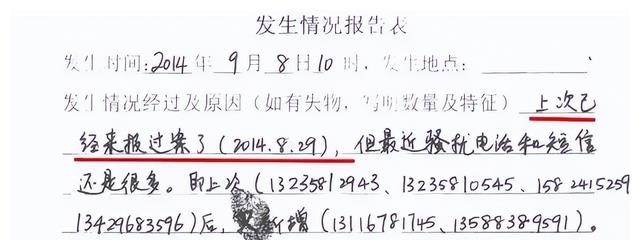 发生情况报告表
发生时间:2014年9月8日10时,发生地点:
发生情况经过及原因(如有失物,写明数量及特征)上次已
经来报过案了(2014.8.29),但最近骚扰电话和短信
还是很多。即上次(13235812943、13235810545、15824415259
13429683596)后,又新增(13116781745、13588389591)。